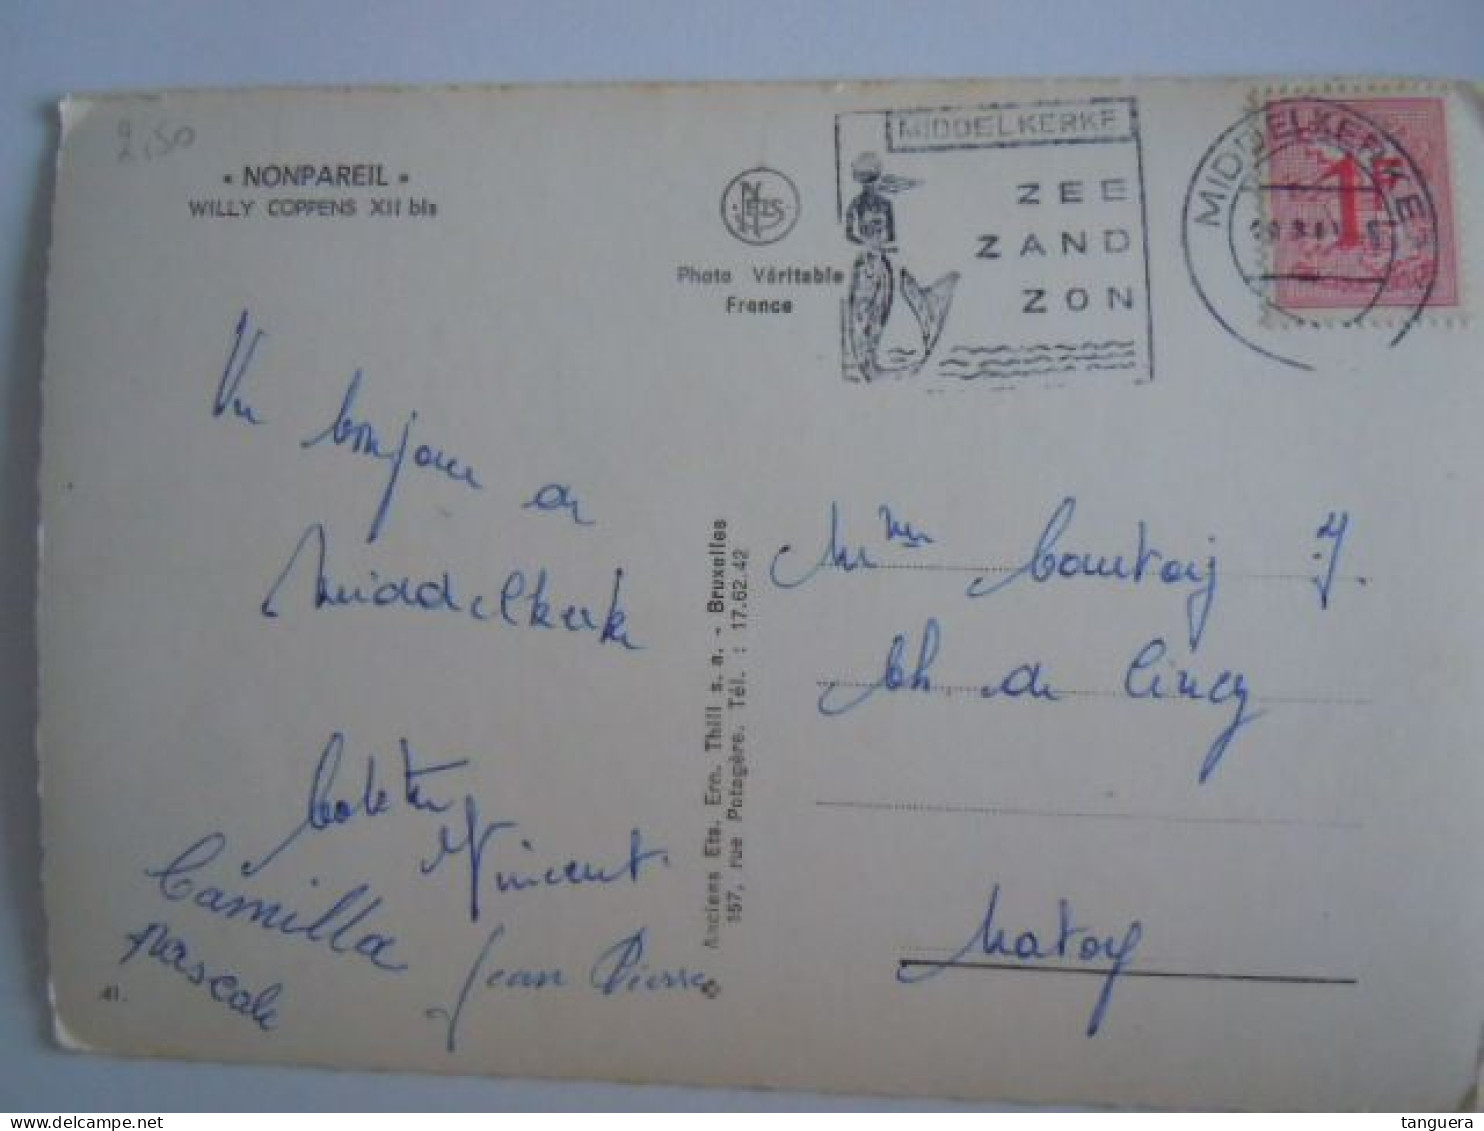 2,50
« NONPAREIL »
WILLY COPPENS XII bis
NELS
Photo Véritable
France
MIDDELKERKE
ZEE
ZAND
ZON
MIDDELKERKE
1F
Un bonjour de
Middelkerke
Colette
Vincent
Camilla
Jean Pierre
Pascale
41.
© Anciens Ets. Ern. Thill s. a. - Bruxelles
157, rue Potagère. Tél. : 17.62.42
Mme Courtoy J.
Ch de Ciney
Natoy
tanguera
www.delcampe.net